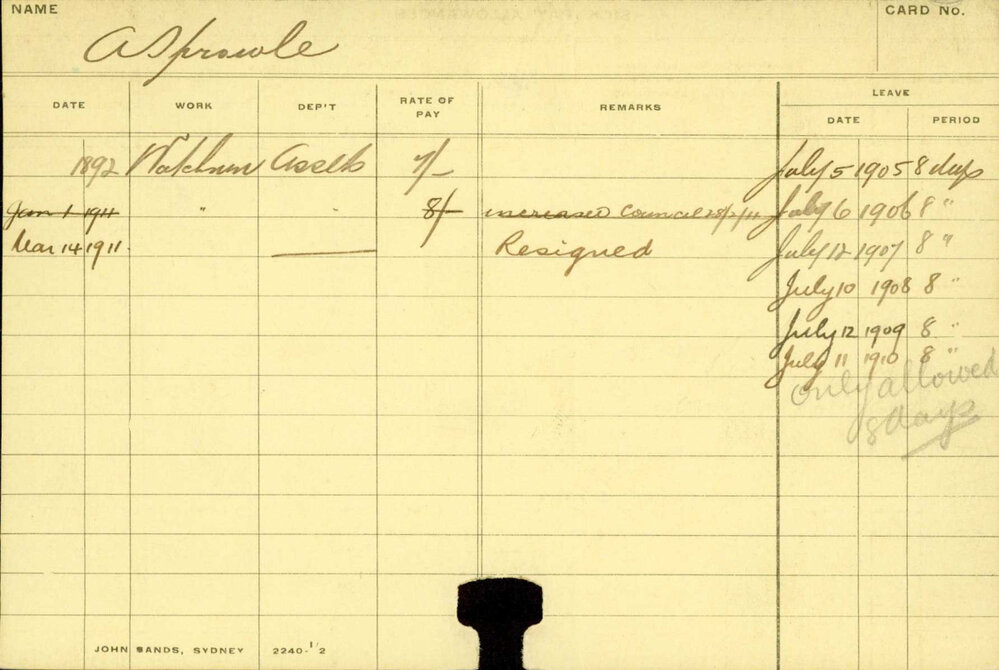 NAME
CARD No.
A Sprowle
DATE WORK DEP'T RATE OF PAY REMARKS LEAVE
DATE PERIOD
1892 Watchman Assets 7/- July 5 1905 8 days
Jan 1 1911 " " 8/- increased Council 28/2/11 July 6 1906 8 "
Mar 14 1911. Resigned July 12 1907 8 "
July 10 1908 8 "
July 12 1909 8 "
July 11 1910 8 "
only allowed
8 days
JOHN SANDS, SYDNEY 2240-1/2